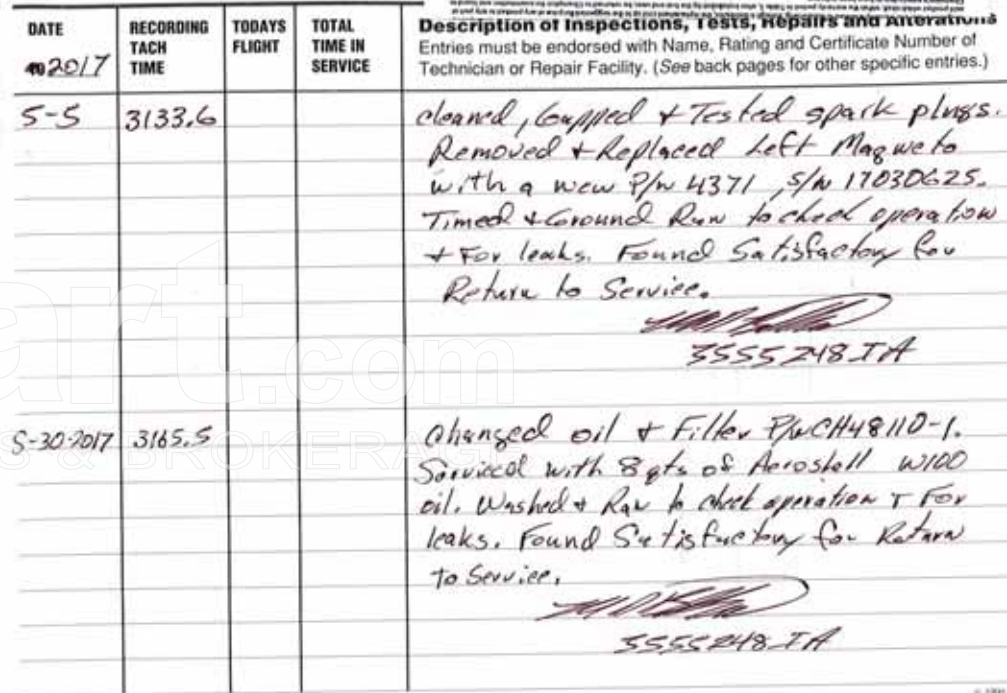 DATE
2017
RECORDING
TACH
TIME
TODAYS
FLIGHT
TOTAL
TIME IN
SERVICE
Description of Inspections, Tests, Repairs and Alterations
Entries must be endorsed with Name, Rating and Certificate Number of
Technician or Repair Facility. (See back pages for other specific entries.)
5-5 3133.6 cleaned, Gapped + Tested spark plugs.
Removed + Replaced Left Magneto
with a new P/N 4371, S/N 17030625.
Timed + Ground Run to check operation
+ For leaks. Found Satisfactory for
Return to Service.
3555248 IA
5-30-2017 3165.5 Changed oil + Filter P/N CH48110-1.
Serviced with 8 qts of Aeroshell W100
oil. Washed + Run to check operation + For
leaks. Found Satisfactory for Return
To Service.
3555248 IA
art.com
S & BROKERAGE